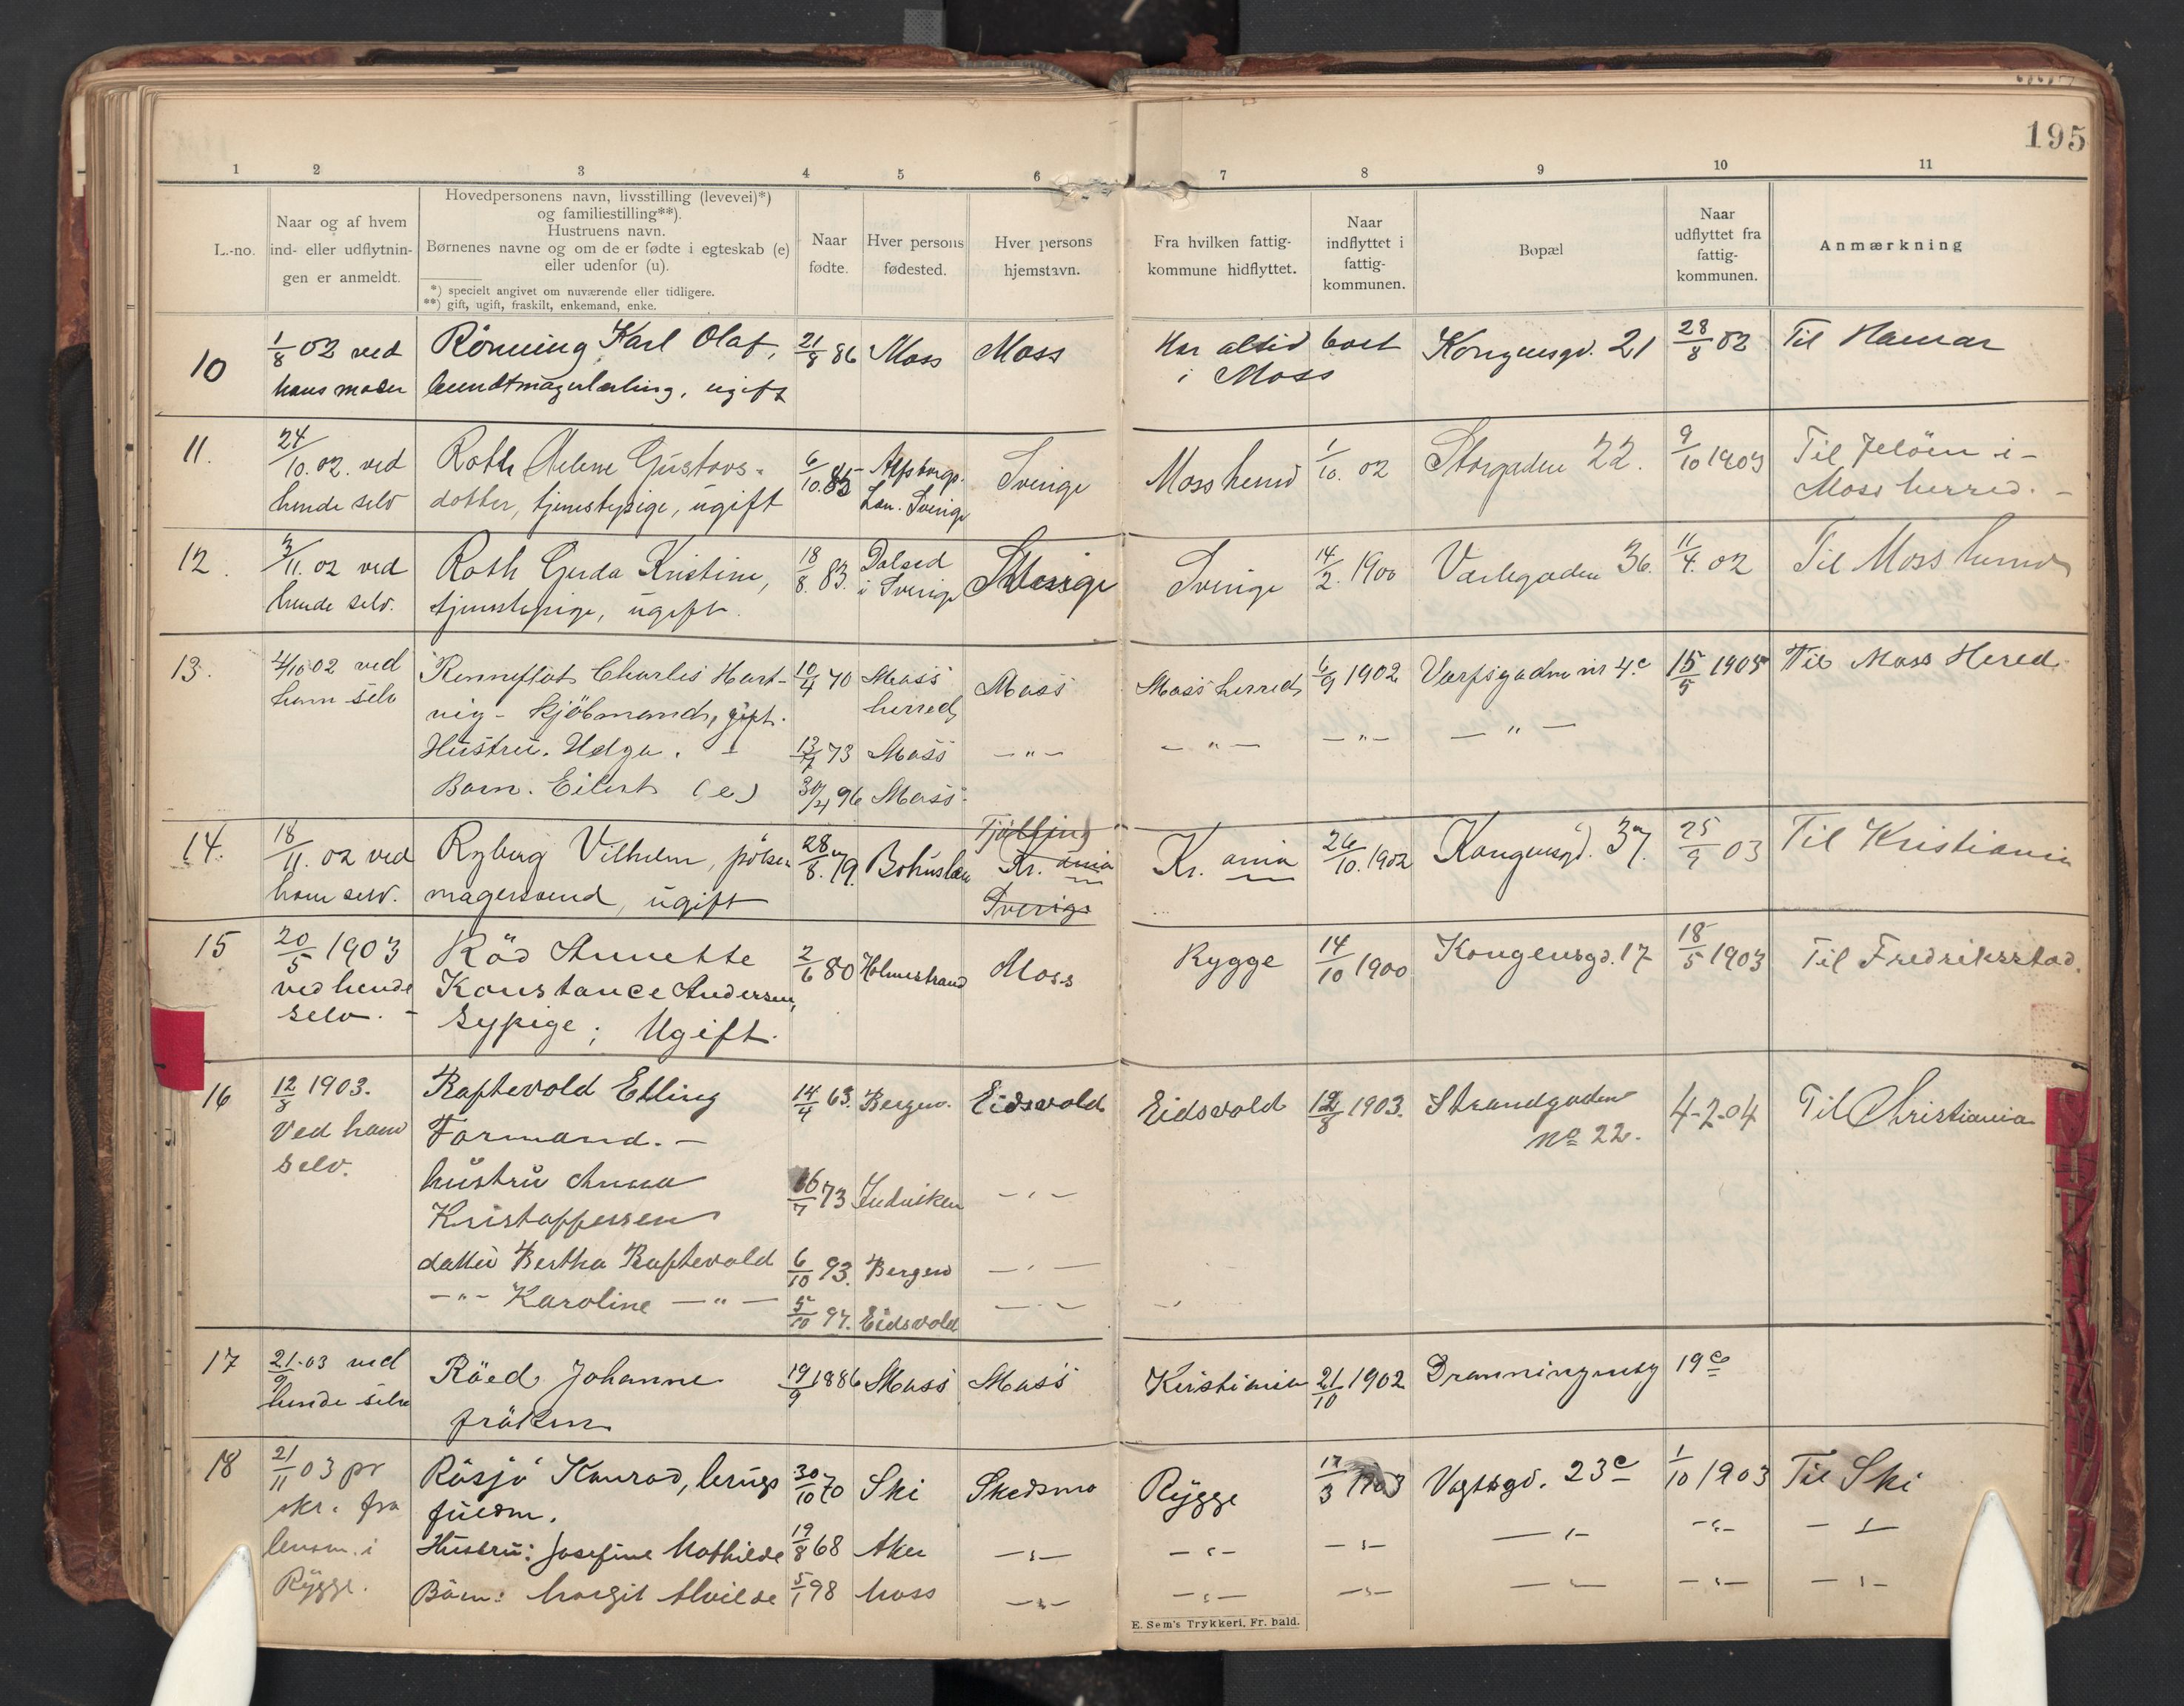 195
1 2 3 4 5 6 7 8 9 10 11
L.-no.
Naar og af hvem
ind- eller udflytnin-
gen er anmeldt.
Hovedpersonens navn, livsstilling (levevei)*)
og familiestilling**).
Hustruens navn.
Børnenes navne og om de er fødte i egteskab (e)
eller udenfor (u).
*) specielt angivet om nuværende eller tidligere.
**) gift, ugift, fraskilt, enkemand, enke.
Naar
fødte.
Hver persons
fødested.
Hver persons
hjemstavn.
Fra hvilken fattig-
kommune hidflyttet.
Naar
indflyttet i
fattig-
kommunen.
Bopæl
Naar
udflyttet fra
fattig-
kommunen.
Anmærkning
10 1/8 02 ved Rönning Karl Olaf, 21/8 86 Moss Moss Har altid boet Kongensgd. 21 28/8 02 Til Hamar
hans moder bundtmagerlærling, ugift i Moss
11. 24/10. 02. ved Roth Helene Gustavs- 6/10 85 Alfsborgs- Sverige Moss herred 1/10. 02 Storgaden 22. 9/10 1903 Til Jelöen i
hende selv dotter, tjenestepige, ugift Län. Sverige Moss herred. -
12. 3/11. 02 ved Roth Gerda Kristine, 18/8. 83. Dalsed Sverige Sverige 14/2. 1900 Varlegaden 36. 11/4. 02 Til Moss herred
hende selv. tjenestepige, ugift. i Sverige
13. 4/10 02 ved Renneflot Charles Hart- 10/4 70 Moss Moss Moss herred 6/9 1902 Varfsgaden nr 4c 15/5 1905 Til Moss Hered.
ham selv vig - kjöbmand, gift. herred - " -
Hustru. Helga. - 13/7 73 Moss - " - - " - - " -
Barn. Eilert (e) 30/4 96 Moss.
14. 18/11. 02 ved Ryberg Vilhelm, pölse- 28/8. 79. Bohuslän Tjölling Kr. ania 26/10. 1902 Kongensgd. 37. 25/9 03 Til Kristiania
Kr. ania
ham selv. magersvend, ugift Sverige
15 20/5 1903 Röd Annette 2/6 80 Holmestrand Moss Rygge 14/10 1900 Kongensgd. 17 18/5 1903 Til Fredriksstad.
ved hende Konstance Andersen,
selv. - Sypige; Ugift.
16 12/8 1903. Raftevold Elling 14/4 63. Bergen. Eidsvold Eidsvold 12/8 1903. Strandgaden 4-2-04 Til Christiania
Ved ham Formand. - No 22.
selv.
hustru Anna 16/7 73 - " -
Kristoffersen
datter Bertha Raftevold 6/10 93. Bergen - " -
- " - Karoline - " - 5/10 97. Eidsvold - " -
17 21/9-03 ved Röed Johanne 19/9 1886 Moss Moss Kristiania 21/10 1902 Dronningensg 19c
hende selv fröken
18 21/11 03 pr Råsjö Konrad, 30/10 70 Ski Skedsmo Rygge 17/3 1903 Vogtsgd. 23c 1/10 1903 Til Ski
skr. fra fuldm.
lensm. i Hustru: Josefine Mathilde 19/8 68 Aker - " - - " - - " - - " - - " - - " -
Rygge. Börn: Margit Alvilde 5/1 98 Moss - " - - " - - " - - " - - " - - " -
E. Sem's Trykkeri, Fr. hald.